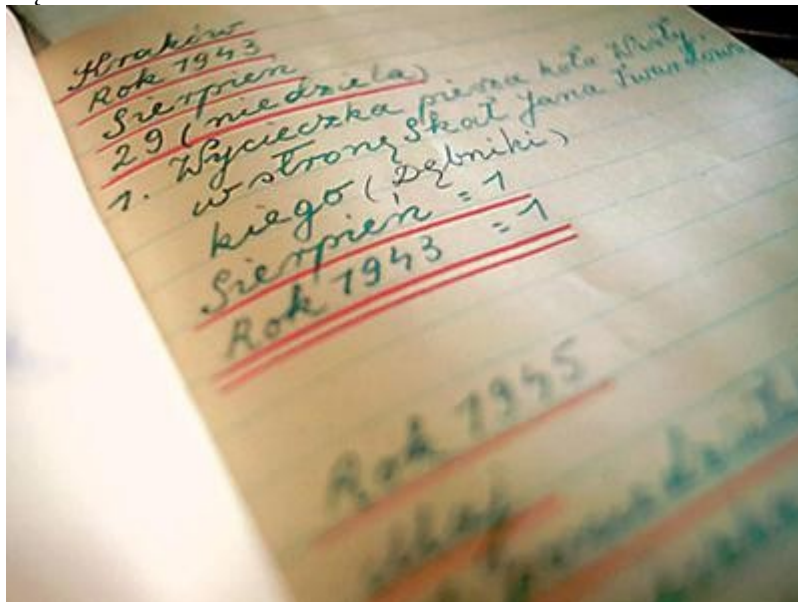 Kraków
Rok 1943
Sierpień
29 (niedziela)
1. Wycieczka piesza koło Wisły,
w stronę Skał Jana Twardows
kiego (Dębniki)
Sierpień = 1
Rok 1943 = 1
Rok 1945
Maj